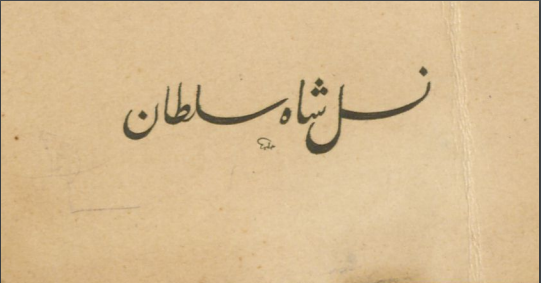 نسل شاه سلطان